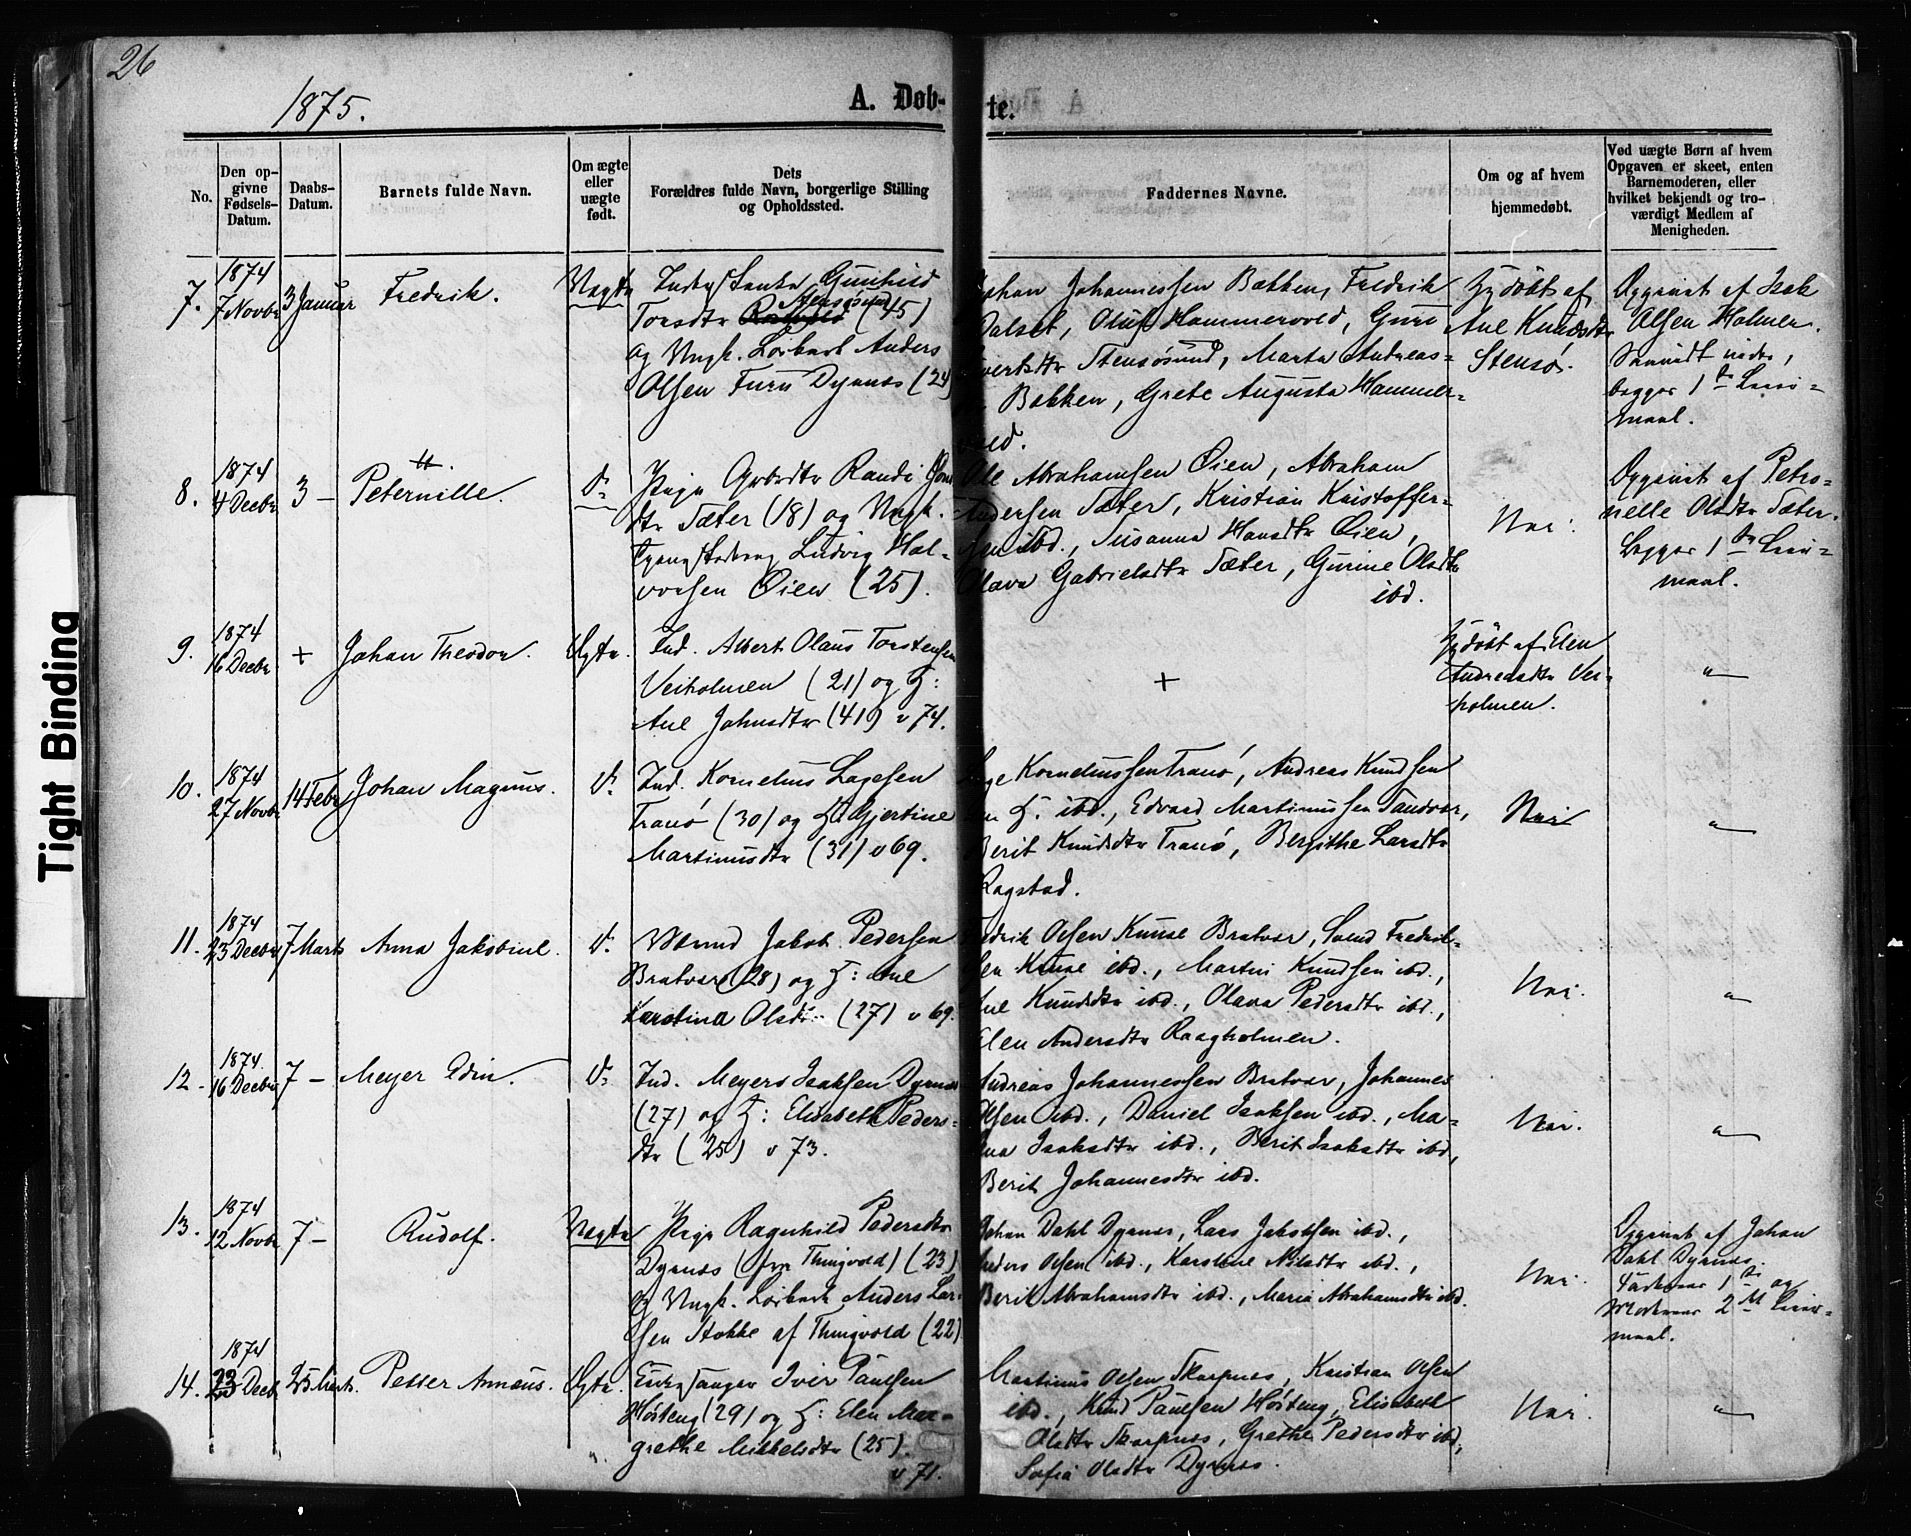 26
1875.
A. Døb-
te.
No.
Den op-
givne
Fødsels-
Datum.
Daabs-
Datum.
Barnets fulde Navn.
Om ægte
eller
uægte
født.
Dets
Forældres fulde Navn, borgerlige Stilling
og Opholdssted.
Faddernes Navne.
Om og af hvem
hjemmedøbt.
Ved uægte Børn af hvem
Opgaven er skeet, enten
Barnemoderen, eller
hvilket bekjendt og tro-
værdigt Medlem af
Menigheden.
7.
1874
7 Novbr
3 Januar
Fredrik.
Uægte
Gunhild
Torsdtr Stensøsund (45)
og Ungk. Anders
Olsen Furu Dyrnes (24)
Johan Johannessen Bakken, Fredrik
Dalset, Oluf Hammervold, Guri
Stensøsund, Marta Andreas-
Bakken, Grete Augusta Hammer-
vold.
af
Ane Knudsdtr
Stensø.
Opgivet af Isak
Olsen Holmen.
begges 1ste Leier-
maal.
8.
1874
4 Decbr
3 –
Peternille.
Pige Randi
dtr Sæter (18) og Ungk.
Ludvig Hal-
vorsen Øien (25).
Ole Abrahamsen Øien, Abraham
Andersen Sæter, Kristian Kristoffer-
sen ibd., Susanna Hansdtr Øien,
Olava Gabrielsdtr Sæter, Gurine Olsdtr
ibd.
Nei.
Opgivet af Petro-
nelle Olsdtr Sæter.
Begges 1ste Leier-
maal.
9.
1874
16 Decbr
+
Johan Theodor.
Ægte.
Ind. Albert Olaus Torstensen
Veiholmen (21) og H:
Ane Johnsdtr (41) v 74.
+
af Elen
Andreasdtr Vei-
holmen.
"
10.
1874
27 Novbr
14 Febr
Johan Magnus.
Do
Ind. Kornelius Lagesen
Tranø (30) og H. Gjertine
Martinusdtr (31) v 69.
Lage Korneliussen Tranø, Andreas Knudsen
H. ibd., Edvard Martinussen Sandvær,
Berit Knudsdtr Tranø, Bergithe Larsdtr
Rogstad.
Nei
"
11.
1874
23 Decbr
7 Marts
Anna Jakobine.
Do
Jakob Pedersen
Bratvær (28) og H: Ane
Karstina Olsdtr (27) v 69.
Fredrik Olsen Knuse Bratvær, Fredrik-
sen Knuse ibd., Martin Knudsen ibd.,
Ane Knudsdtr ibd., Olava Pedersdtr ibd.,
Elen Andersdtr Raagholmen.
Nei.
"
12.
1874.
16 Decbr
7 –
Meyer Edin.
Do
Ind. Meyer Isaksen Dyrnes
(27) og H: Elisabeth Peders-
dtr (25) v 73.
Andreas Johannessen Bratvær, Johannes
Olsen ibd., Daniel Isaksen ibd., Ma-
Isaksdtr ibd., Berit Isaksdtr ibd,
Berit Johannesdtr ibd.
Nei.
"
13.
1874
12 Novbr
7 –
Rudolf.
Uægte
Pige Ragnhild Pedersdtr
Dyrnes (fra Thingvold) (23)
og Ungk. Anders Lar-
sen Stokke af Thingvold (22)
Johan Dahl Dyrnes, Lars Jakobsen ibd.,
Peders Olsen ibd., Karoline Nilsdtr ibd.,
Berit Abrahamsdtr ibd., Maria Abrahamsdtr ibd.
Nei.
Opgivet af Johan
Dahl Dyrnes.
1ste og
2det Leier-
maal.
14.
1874
23 Decbr
25 Marts.
Petter Arnæus.
Ægte.
Iver Paulsen
Høiteng (29) og H: Elen Mar-
grethe Mikkelsdtr (25).
v 71.
Martinus Olsen Skarpnes, Kristian Olsen
ibd., Knud Paulsen Høiteng, Elisabeth
Olsdtr Skarpnes, Grethe Pedersdtr ibd,
Sofie Olsdtr Dyrnes.
Nei.
"
Tight Binding